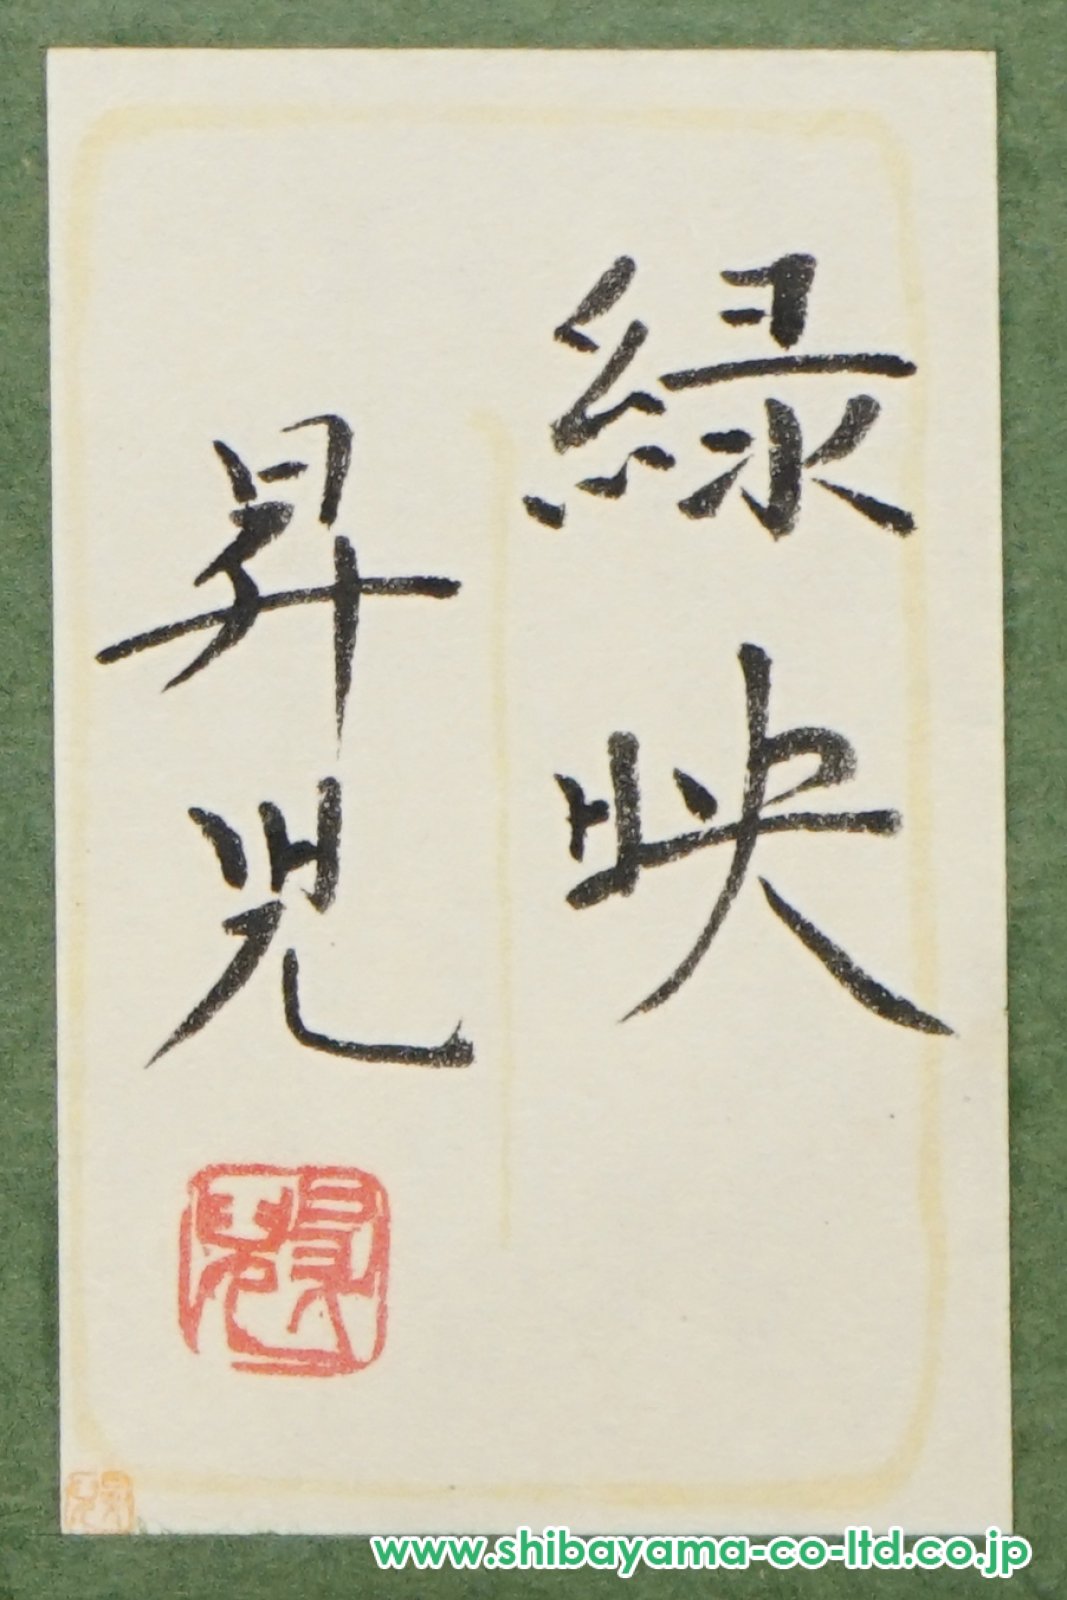 緑映
昇兒
www.shibayama-co-ltd.co.jp